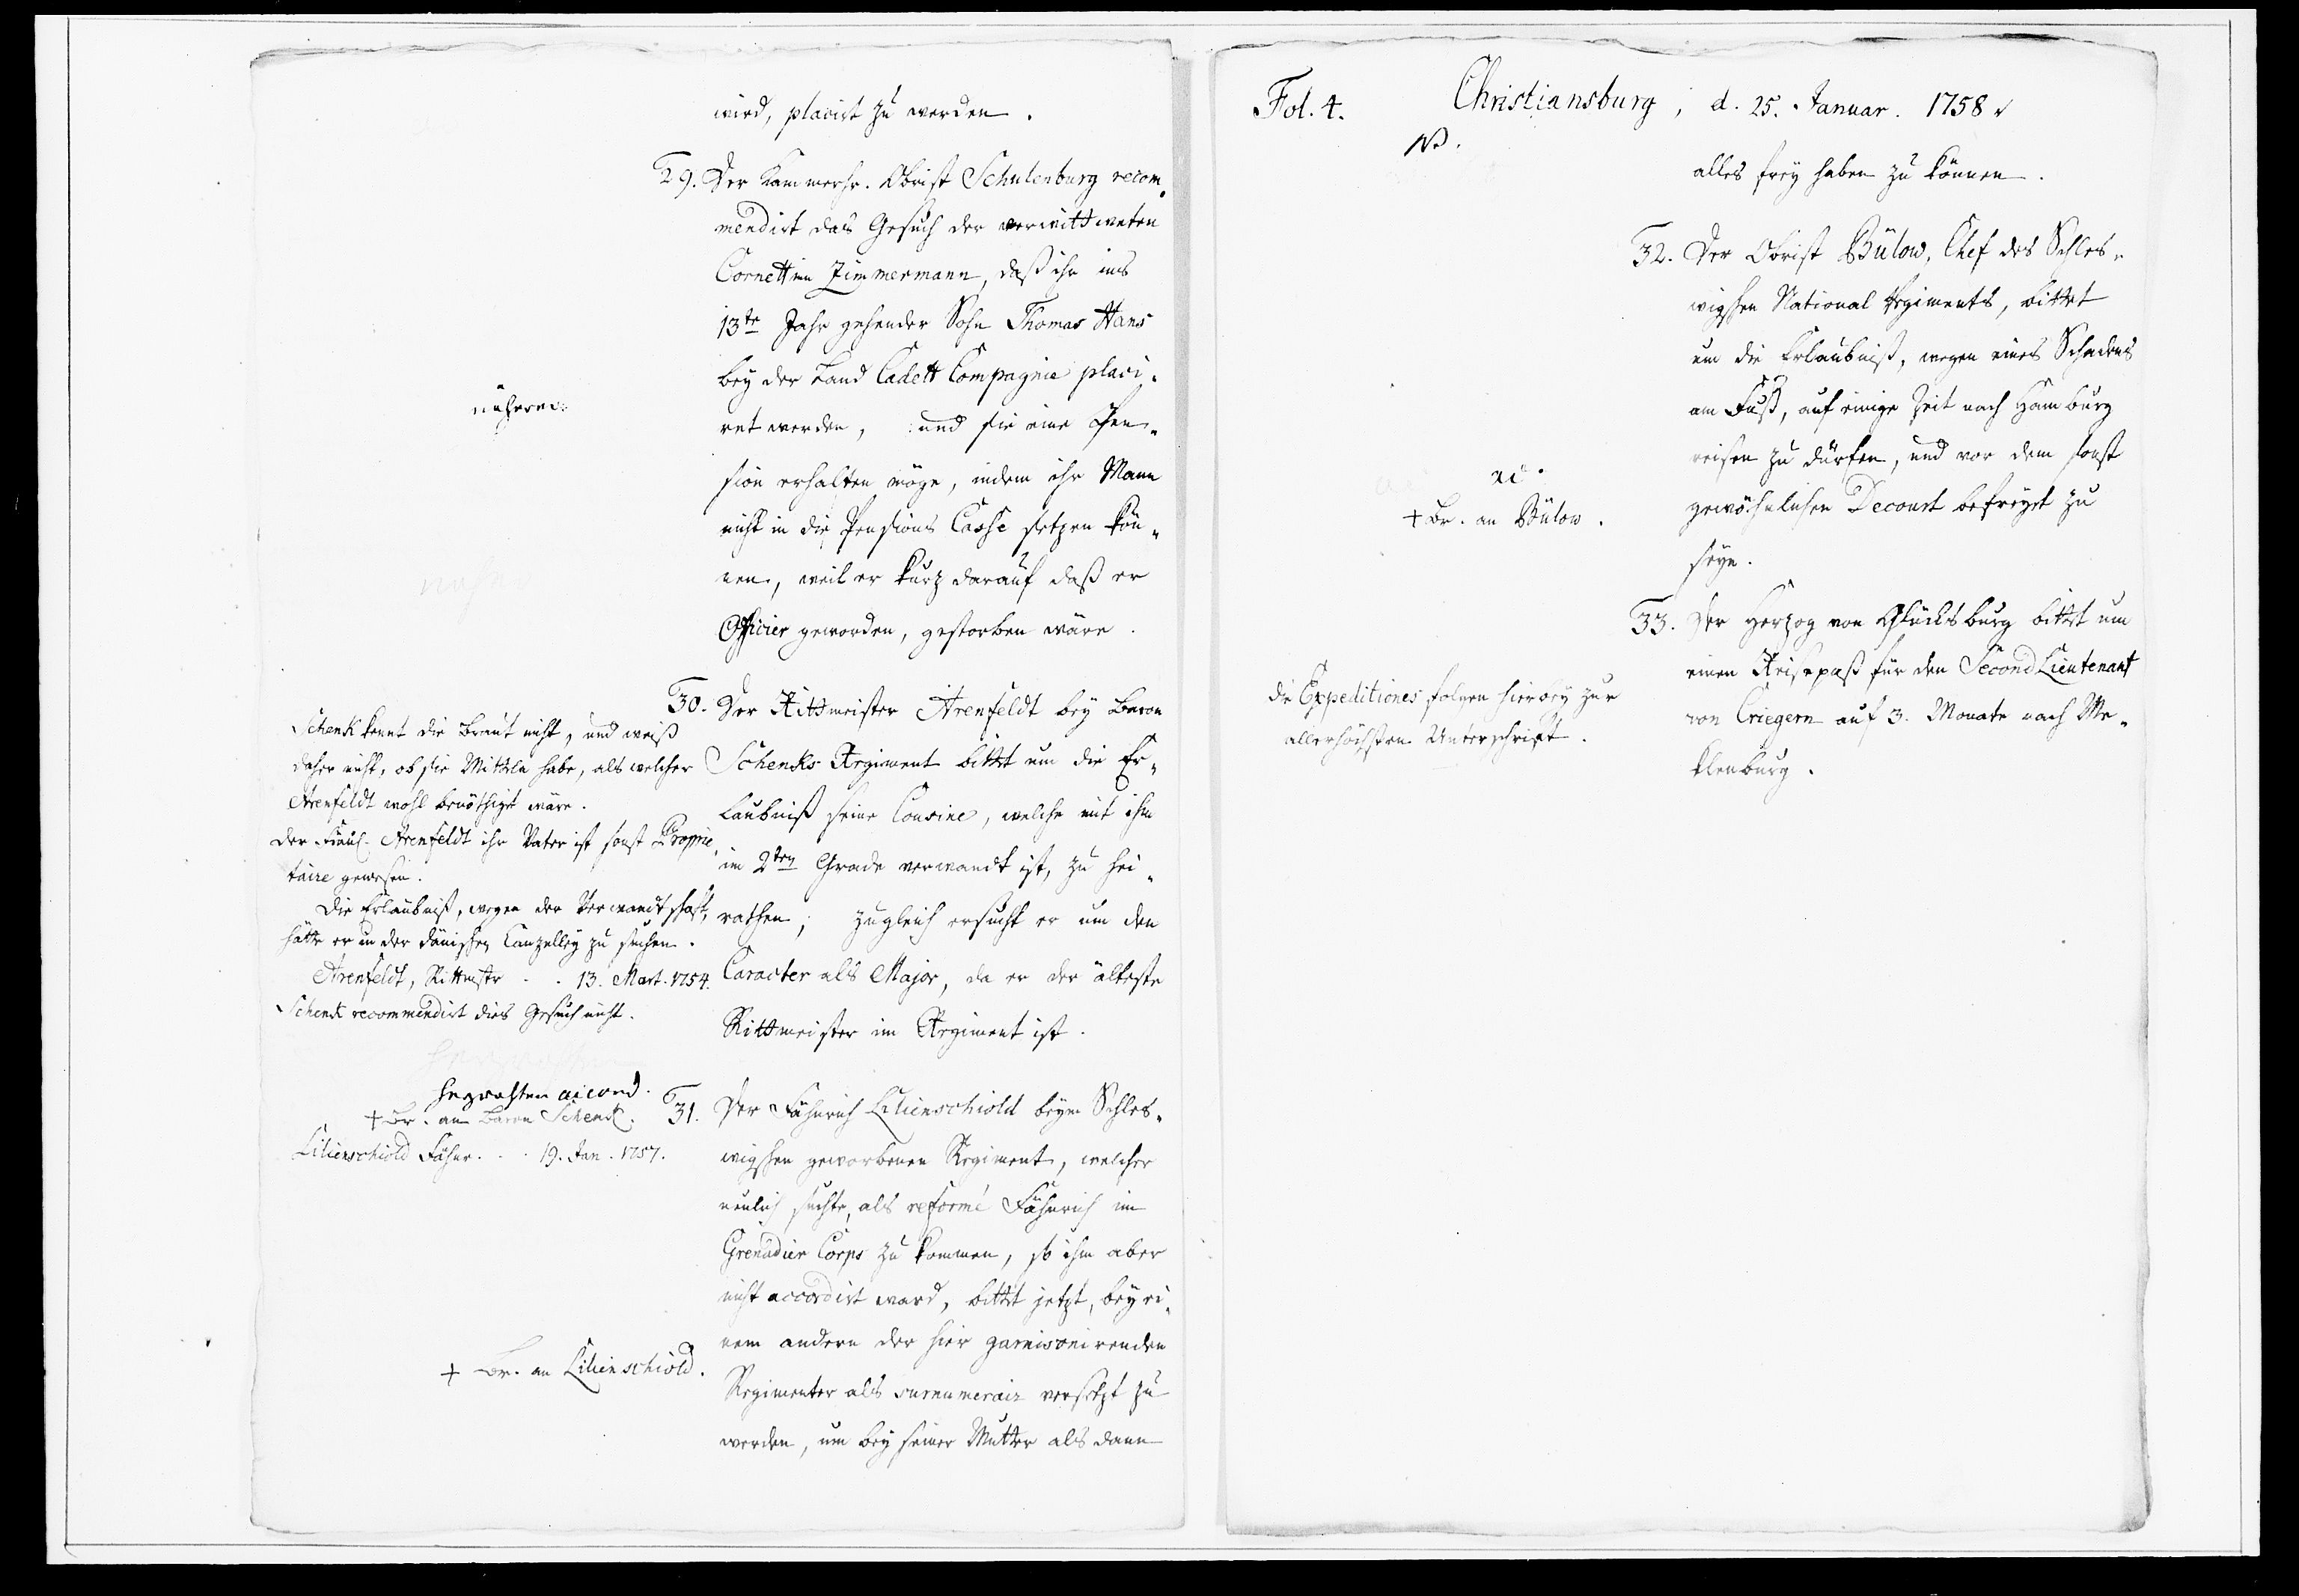 wird, placirt zu werden.
29. Der Kammerhr. Obrist Schulenburg recom„
mendirt das Gesuch der verwittweten
Cornettin Zimmermann, daß ihr ins
13te Jahr gehender Sohn Thomas Hans
bey der Land Cadett Compagnie placi„
ret werden, und sie eine Pen„
sion erhalten möge, indem ihr Mann
nicht in die Pensions Casse setzen kön„
nen, weil er kurz darauf daß er
Officier geworden, gestorben wäre.
30. Der Rittmeister Arenfeldt bey Baron
Schenks Regiment bittet um die Er„
laubniß seine Cousine, welche mit ihm
im 2ten Grade verwandt ist, zu hei„
rathen; zugleich ersucht er um den
Caracter als Major, da er der älteste
Rittmeister im Regiment ist.
Schenk kennt die Braut nicht, und weiß
daher nicht, ob sie Mittel habe, als welcher
Arenfeldt wohl benöthigt wäre.
Der Arenfeldt ihr Vater ist sonst Proprie„
taire gewesen.
Die Erlaubniß, wegen der Verwandtschaft,
hätte er in der dänischen Canzelley zu suchen.
Arenfeldt, Rittmstr . . 13. Mart. 1754.
Schenk recommendirt dies Gesuch nicht.
accord.
+ Br. an Baron Schenk.
31. Der Fähnrich Lilienschiold beym Schles„
wigschen geworbenen Regiment, welcher
neulich suchte, als reformé Fähnrich im
Grenadier Corps zu kommen, so ihm aber
nicht accordirt ward, bittet jetzt, bey ei„
nem andern der hier garnisonirenden
Regimenter als surnumerair versetzt zu
werden, um bey seiner Mutter als dann
Lilienschiold Fähnr. . . 19. Jan. 1757.
+ Br. an Lilienschiold.
Fol. 4. Christiansburg, d. 25. Januar. 1758
alles frey haben zu können.
32. Der Obrist Bülow, Chef des Schles„
wigschen National Regiments, bittet
um die Erlaubniß, wegen eines Schadens
am Fuß, auf einige Zeit nach Hamburg
reisen zu dürfen, und vor dem sonst
gewöhnlichen Decourt befreyet zu
seyn.
+ Br. an Bülow.
33. Der Herzog von Glücksburg bittet um
einen Reisepaß für den Second Lieutenant
von Criegern auf 3. Monate nach Me„
klenburg.
die Expeditiones folgen hierbey zur
allerhöchsten Unterschrift.